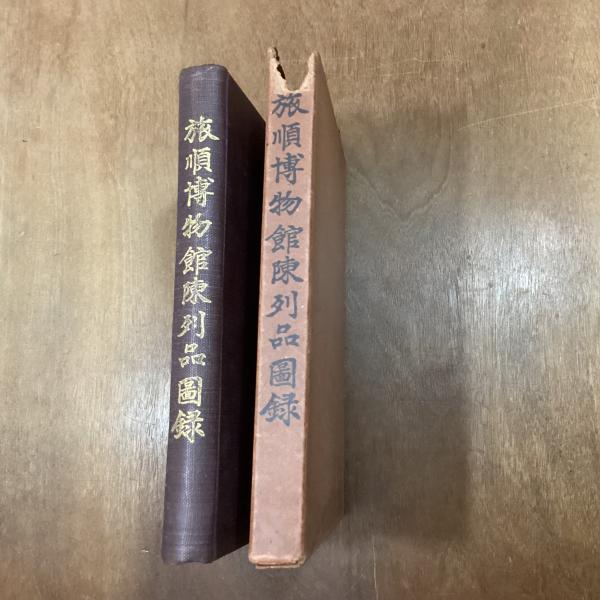 旅順博物館陳列品圖録
旅順博物館陳列品圖録